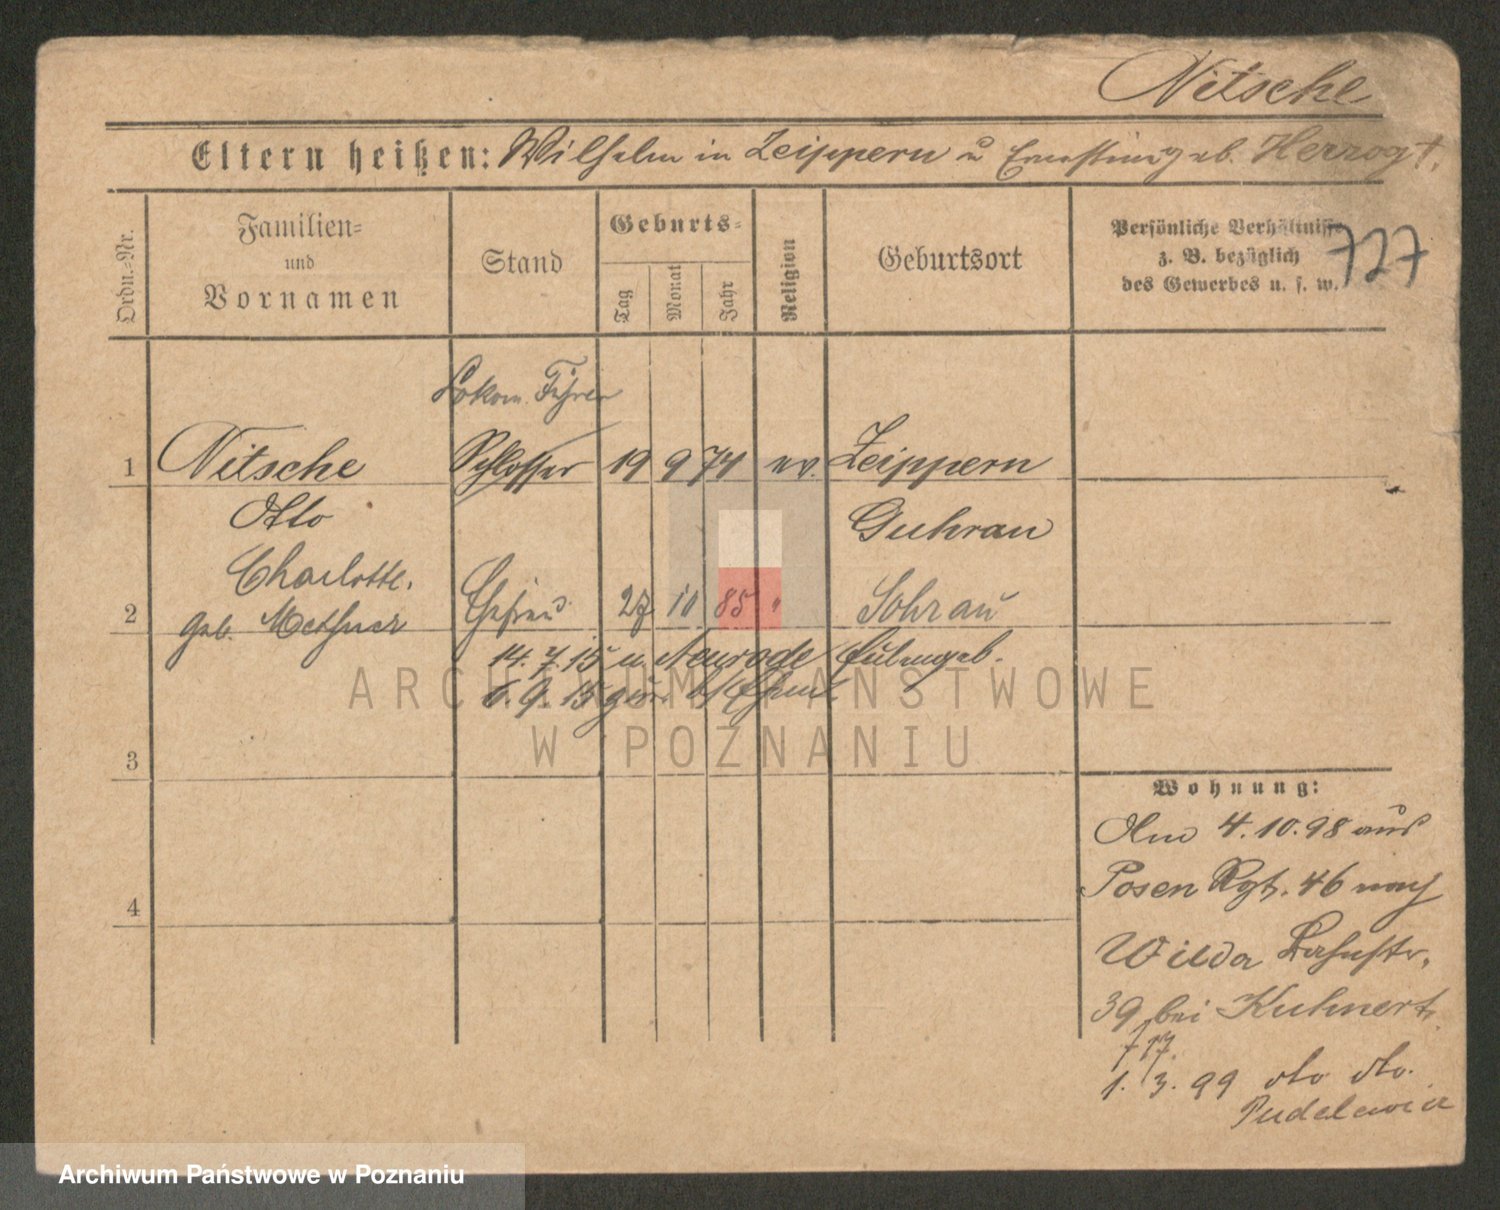 Nitsche
Eltern heißen: Wilhelm in Zeippern u Ernestine geb. Herzogt.
Ordn.-Nr.
Familien-
und
Vornamen
Stand
Geburts-
Tag
Monat
Jahr
Religion
Geburtsort
Persönliche Verhältnisse
z. B. bezüglich
des Gewerbes u. s. w.
727
Lokom. Führer
1 Nitsche Schlosser 19 9 74 ev. Zeippern
Otto Guhrau
Charlotte.
2 geb. Methner Ehefrau 27 10 85 " Sohrau
14. 7. 15 n. Neurode Eulengeb.
6. 9. 15 zur.
ARCHIWUM PAŃSTWOWE
W POZNANIU
3
4
Wohnung:
Am 4.10.98 aus
Posen Rgt. 46 nach
Wilda Bahnstr.
39 bei Kuhnert.
717.
1. 3. 99 dto dto.
Pudelewicz
Archiwum Państwowe w Poznaniu